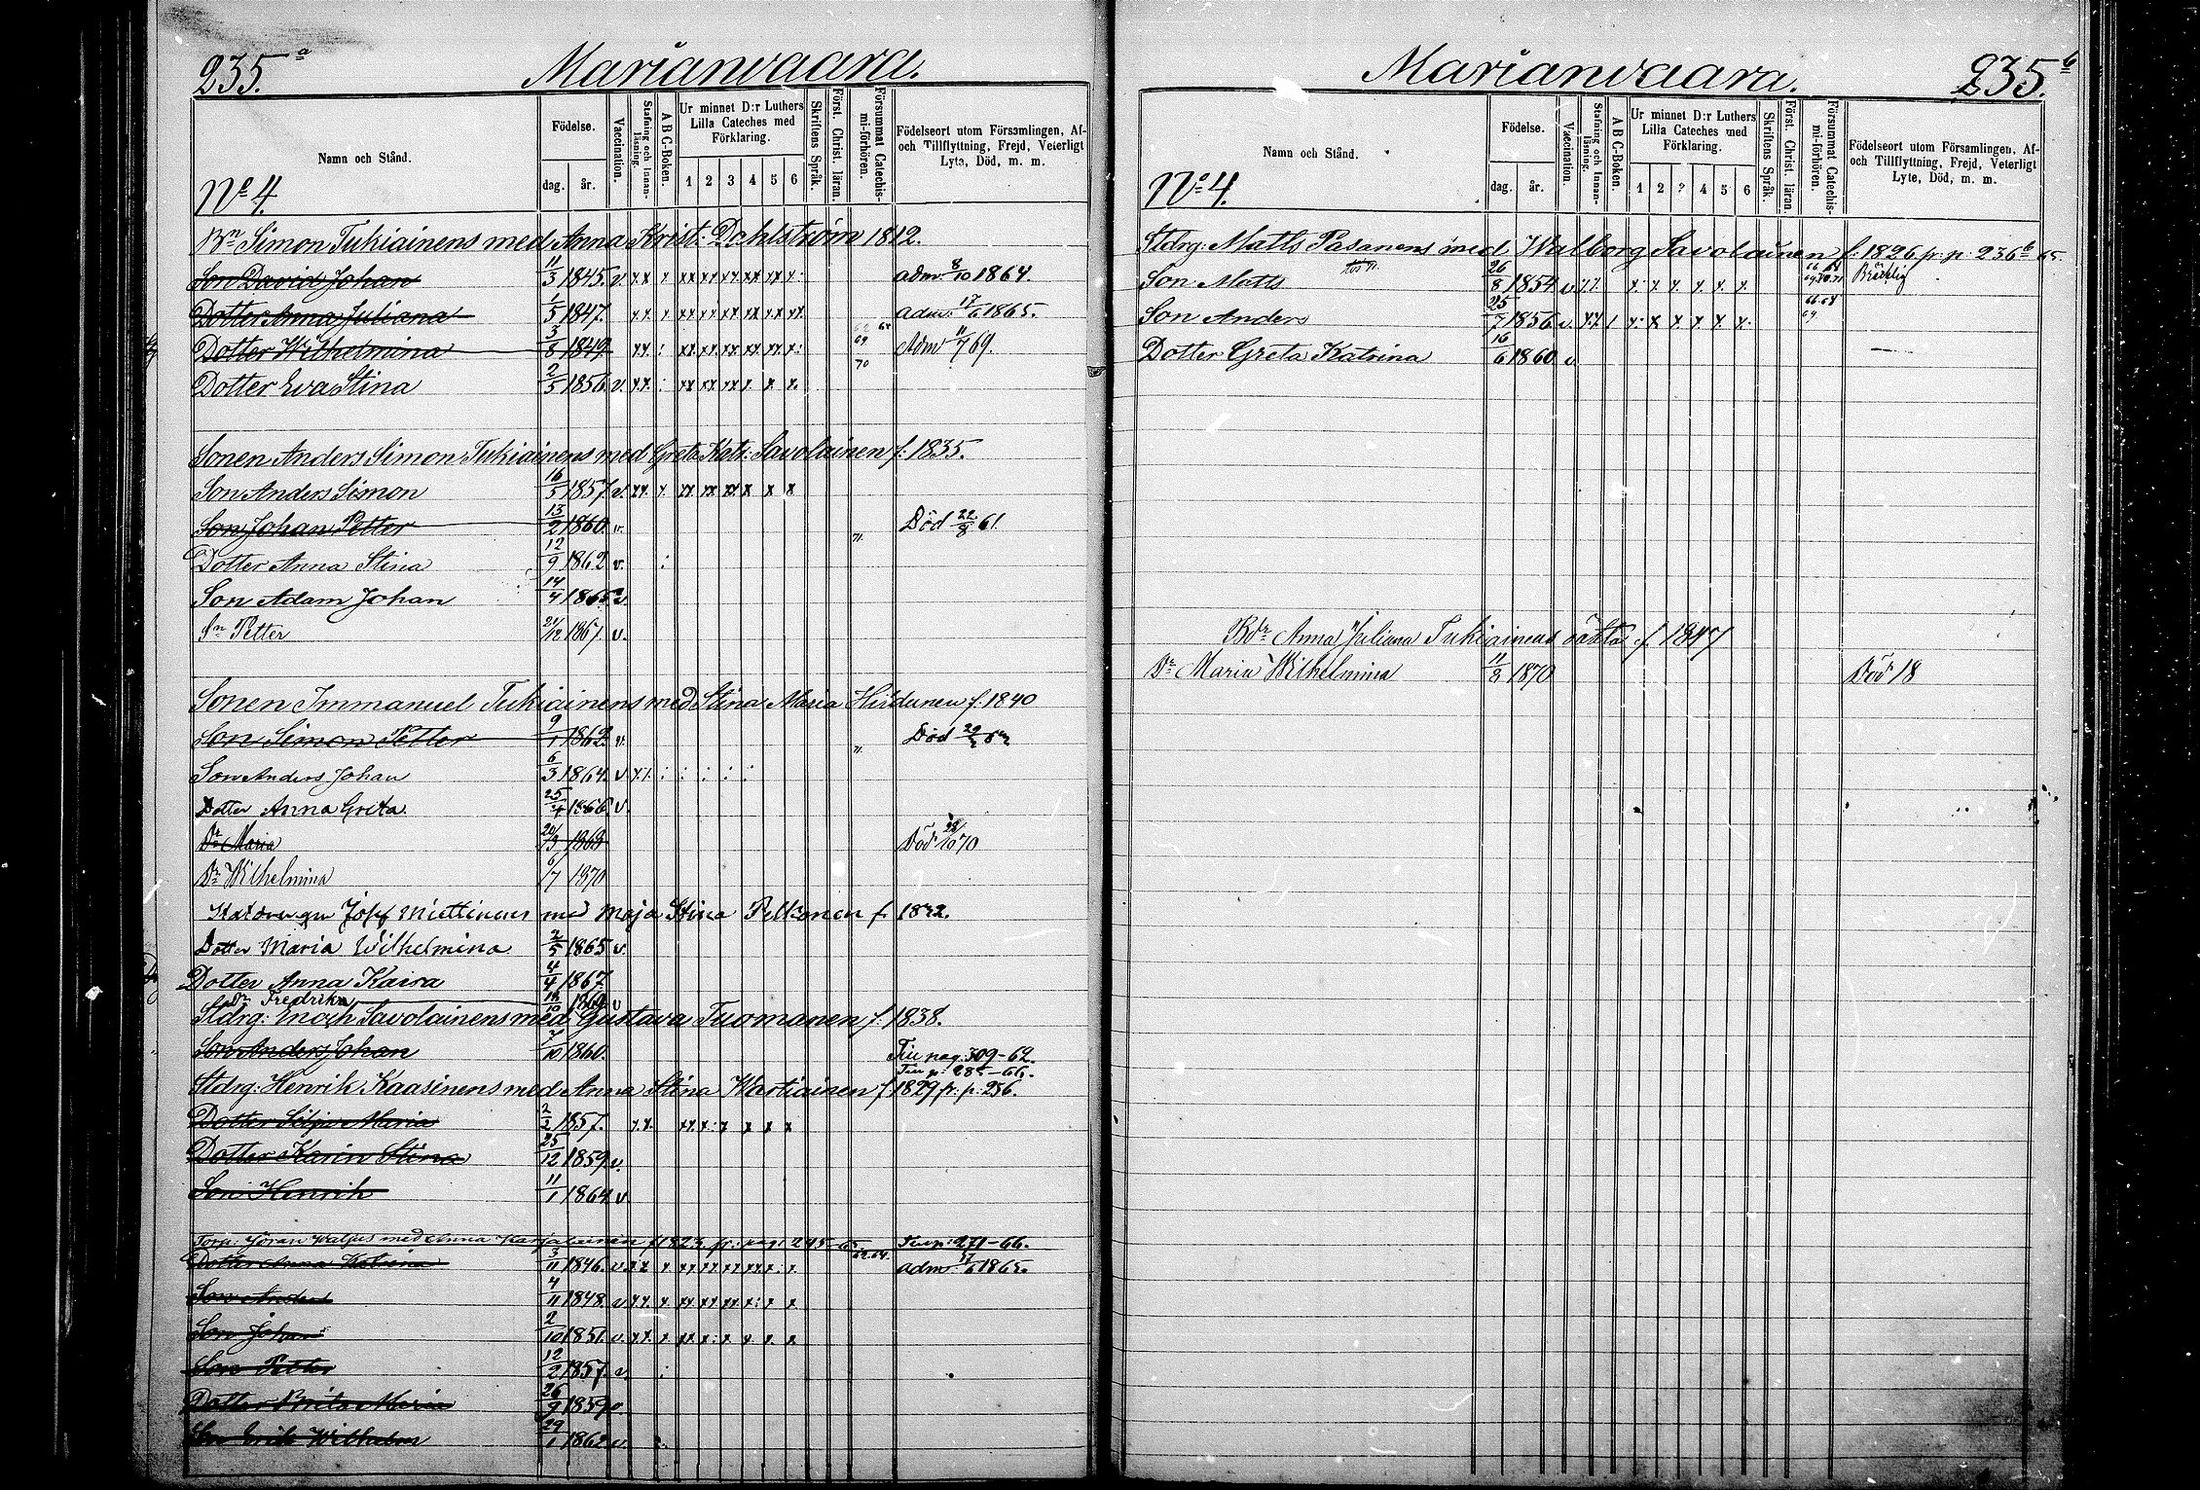 235.a Marianvaara.
Namn och Stånd.
Födelse.
dag. år.
Vaccination.
Stafning och Innanläsning.
A B C-Boken.
Ur minnet D:r Luthers Lilla Cateches med Förklaring.
1 2 3 4 5 6
Skriftens Språk.
Först. Christ. läran.
Försummat Catechismi-förhören.
Födelseort utom Församlingen, Af- och Tillflyttning, Frejd, Veterligt Lyta, Död, m. m.
No 4.
Bn Simon Tukiainens med Anna Krist: Dahlström 1812.
Son David Johan 11/3 1845. v. adm. 8/10 1864.
Dotter Anna Juliana 1/5 1847. adm. 17/6 1865.
Dotter Wilhelmina 3/8 1849 69 70 Adm 11/7 69.
Dotter Eva Stina 2/5 1856 v.
Sonen Anders Simon Tukiainens med Greta Katr: Savolainen f. 1835.
Son Anders Simon 16/5 1857 v.
Son Johan Petter 13/2 1860 v. Död 22/8 61.
Dotter Anna Stina 12/9 1862 v. 71.
Son Adam Johan 14/4 1865 v.
Sn Petter 21/12 1867. v.
Sonen Immanuel Tukiainens med Stina Maria Hirvonen f. 1840
Son Simon Petter 9/1 1862 v. Död
Son Anders Johan 6/3 1864. v 71.
Dotter Anna Greta 25/4 1866 v.
Dr Maria 20/3 1869 Död 28/10 70
Dr Wilhelmina 6/7 1870
Josef Miettinens med Maja Stina Pelkonen f.
Dotter Maria Wilhelmina 2/5 1865 v.
Dotter Anna Kaisa 4/4 1867
Dr Fredrika 1869 v
Stdrg: Enoch Savolainens med Gustava Tuomanen f. 1838.
Son Anders Johan 7/10 1860. Till pag. 309-62.
Till p: 285-66.
Stdrg: Henrik Kaasinens med Anna Stina Wartiainen f. 1829 fr: p: 256.
Dotter Maria 2/2 1857.
Dotter Karin Stina 25/12 1859 v.
Son Henrik 11/1 1864 v
Torp: Jöran med Anna f 1823 fr: pag: 245 Till p: 271-66.
Dotter Anna Katrina 3/11 1846. v. 62 64. adm. 17/6 1865.
Son Anders 4/11 1848 v
Son Johan 2/10 1851. v.
Son Petter 12/2 1857. v.
Dotter Brita Maria 26/9 1859 v.
Son Erik Wilhelm 29/1 1862 v.
Marianvaara. 235.b
Namn och Stånd.
Födelse.
dag. år.
Vaccination.
Stafning och Innanläsning.
A B C-Boken.
Ur minnet D:r Luthers Lilla Cateches med Förklaring.
1 2 3 4 5 6
Skriftens Språk.
Först. Christ. läran.
Försummat Catechismi-förhören.
Födelseort utom Församlingen, Af- och Tillflyttning, Frejd, Veterligt Lyte, Död, m. m.
No 4.
Stdrg: Matts Pasanens med Walborg Savolainen f. 1826 fr: p: 236b 65.
Son Matts 26/8 1854 v Bräcklig
Son Anders 25/7 1856 v. 66.68 69
Dotter Greta Katrina 16/6 1860 v
Anna Juliana Tukiainens oäkta f. 1847
Dr Maria Wilhelmina 1870 Död 18